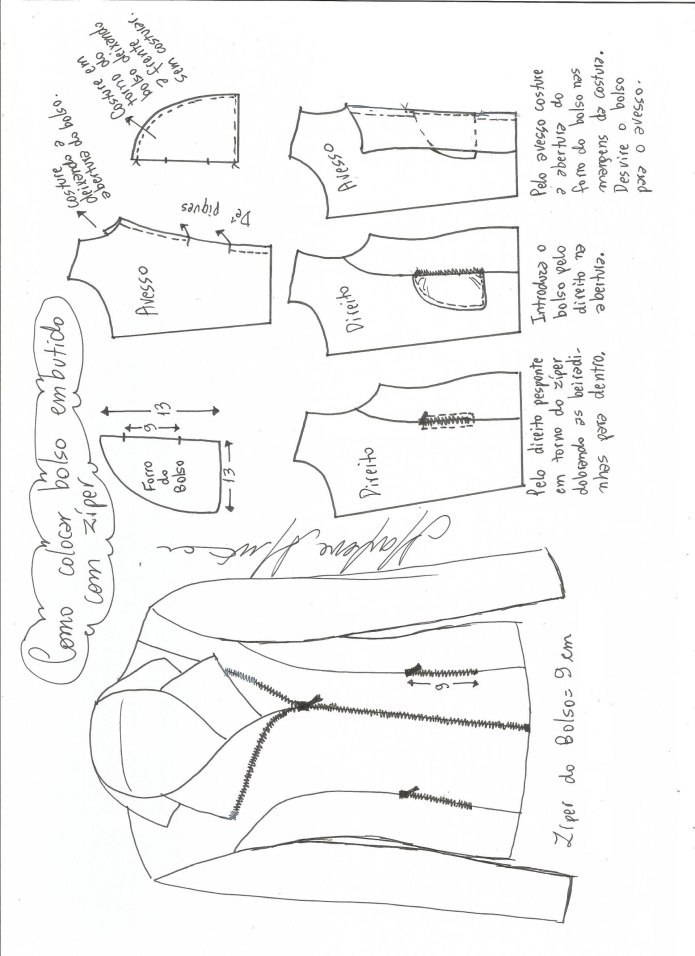 Como colocar bolso embutido
com zíper
9
Zíper do Bolso = 9 cm
Marlene Mukai
13
9
Forro
do
Bolso
13
Avesso
costure
deixando a
abertura do bolso.
Dê
Piques
Costure em
torno do
bolso deixando
a frente
sem costurar.
Direito
Pelo direito pesponte
em torno do zíper
dobrando as beiradi-
nhas para dentro.
Direito
Introduza o
bolso pelo
direito na
abertura.
Avesso
Pelo avesso costure
a abertura do
forro do bolso nas
margens da costura.
Desvire o bolso
para o avesso.